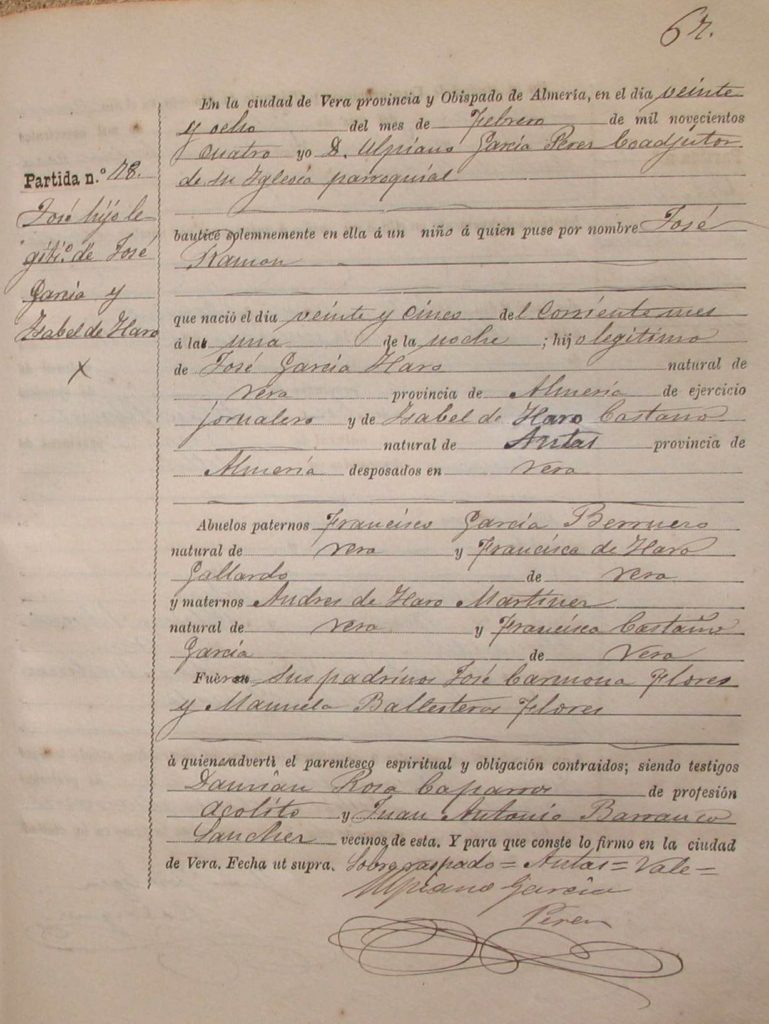 67.
En la ciudad de Vera provincia y Obispado de Almería, en el día veinte
y ocho del mes de Febrero de mil novecientos
cuatro yo D. Ulpiano García Perez Coadjutor
de su Iglesia parroquial
Partida n.º 78.
José hijo le
giti.º de José
Garcia y
Isabel de Haro
X
bauticé solemnemente en ella á un niño á quien puse por nombre José
Ramon
que nació el día veinte y cinco del corriente mes
á la una de la noche ; hijo legitimo
de José García Haro natural de
Vera provincia de Almería de ejercicio
jornalero y de Isabel de Haro Castaño
natural de Antas provincia de
Almería desposados en Vera
Abuelos paternos Francisco García Berruezo
natural de Vera y Francisca de Haro
Gallardo de Vera
y maternos Andres de Haro Martinez
natural de Vera y Francisca Castaño
García de Vera
Fueron sus padrinos José Carmona Flores
y Manuela Ballesteros Flores
á quienes advertí el parentesco espiritual y obligación contraidos; siendo testigos
Damián Rosa Caparros de profesión
acolito y Juan Antonio Barranco
Sanchez vecinos de esta. Y para que conste lo firmo en la ciudad
de Vera. Fecha ut supra. Sobreraspado = Antas = Vale =
Ulpiano García
Perez